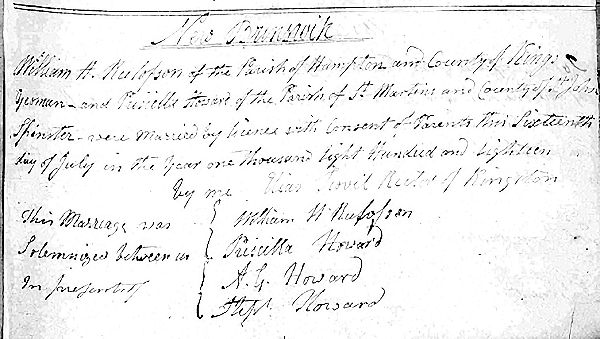 New Brunswick
William H. Rulofson of the Parish of Hampton and County of Kings
Yeoman - and Priscilla Howard of the Parish of St Martins and County of St John
Spinster - were Married by licence with Consent of Parents this Sixteenth
day of July in the Year one thousand Eight Hundred and Eighteen
by me Elias Scovil Rector of Kingston
This Marriage was
Solemnized between us
In presence of
William H Rulofson
Priscilla Howard
A. G. Howard
Stepn Howard